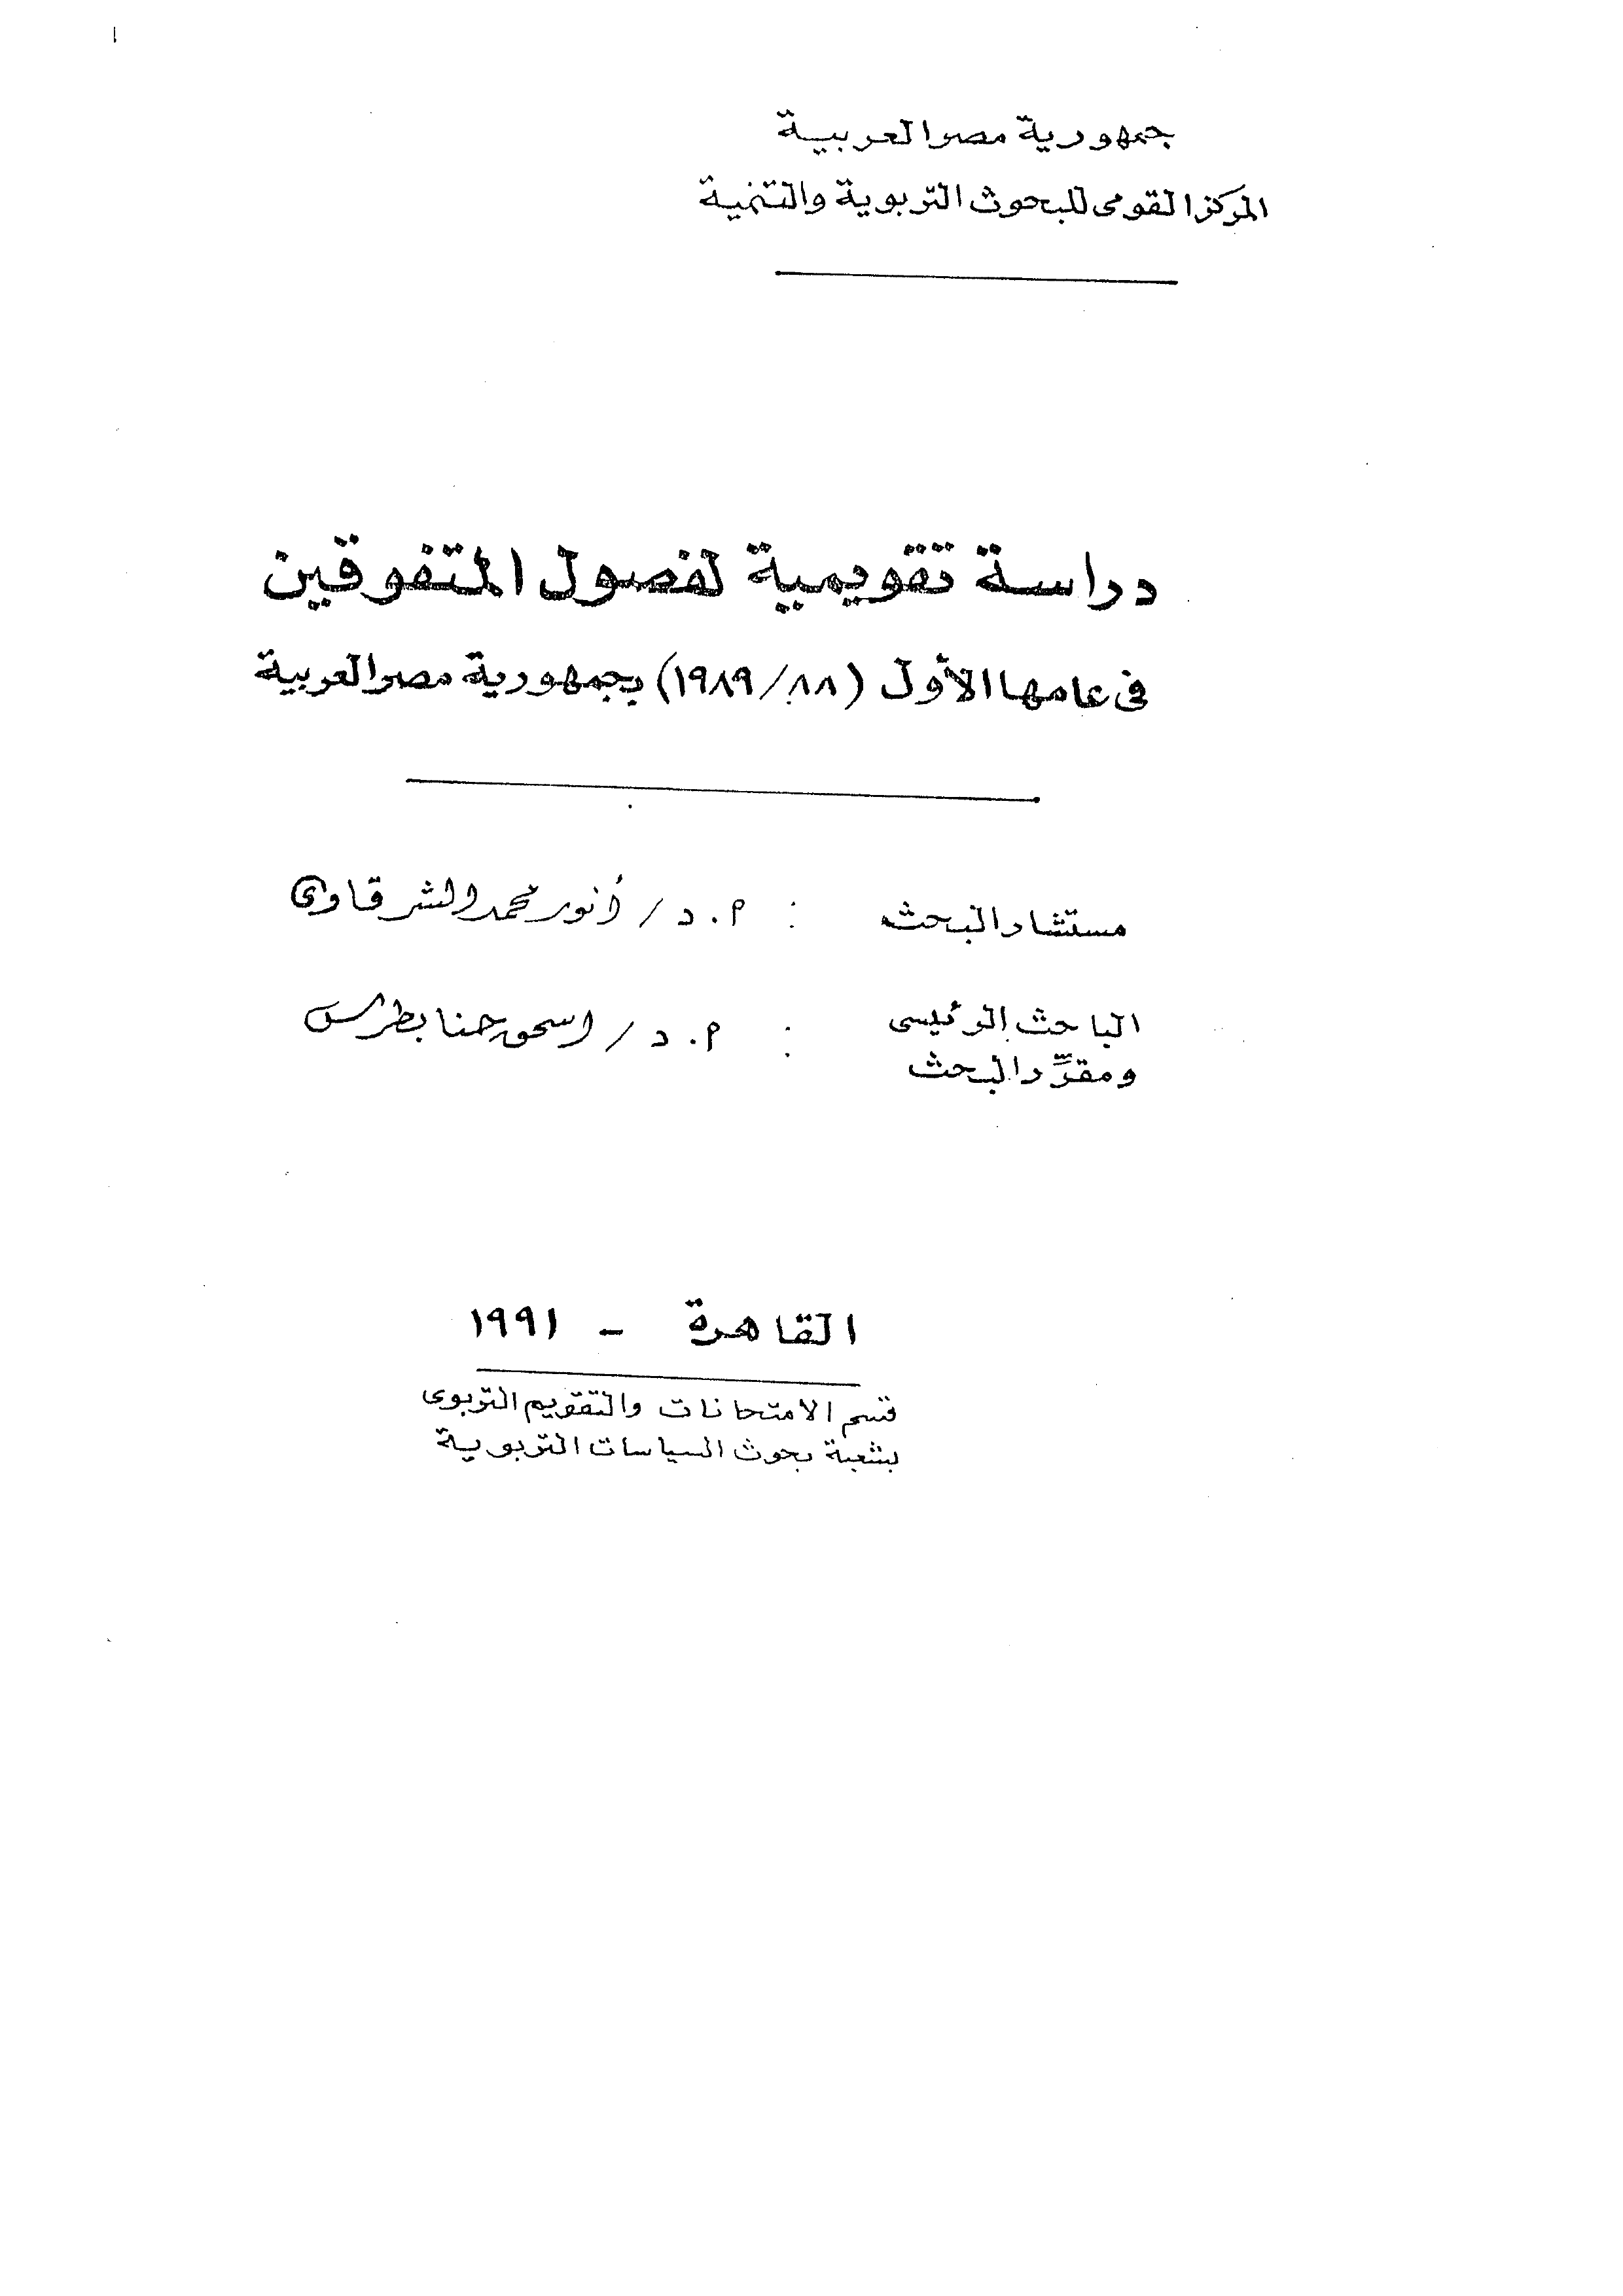 جمهورية مصر العربية
المركز القومى للبحوث التربوية والتنمية
دراسة تقويمية لفصول المتفوقين
فى عامها الأول (٨٨/١٩٨٩) بجمهورية مصر العربية
مستشار البحث : أ. د/ أنور محمد الشرقاوى
الباحث الرئيسى : أ. د/ اسحق حنا بطرس
ومقرِّر البحث
القاهرة - ١٩٩١
قسم الامتحانات والتقويم التربوى
بشعبة بحوث السياسات التربوية